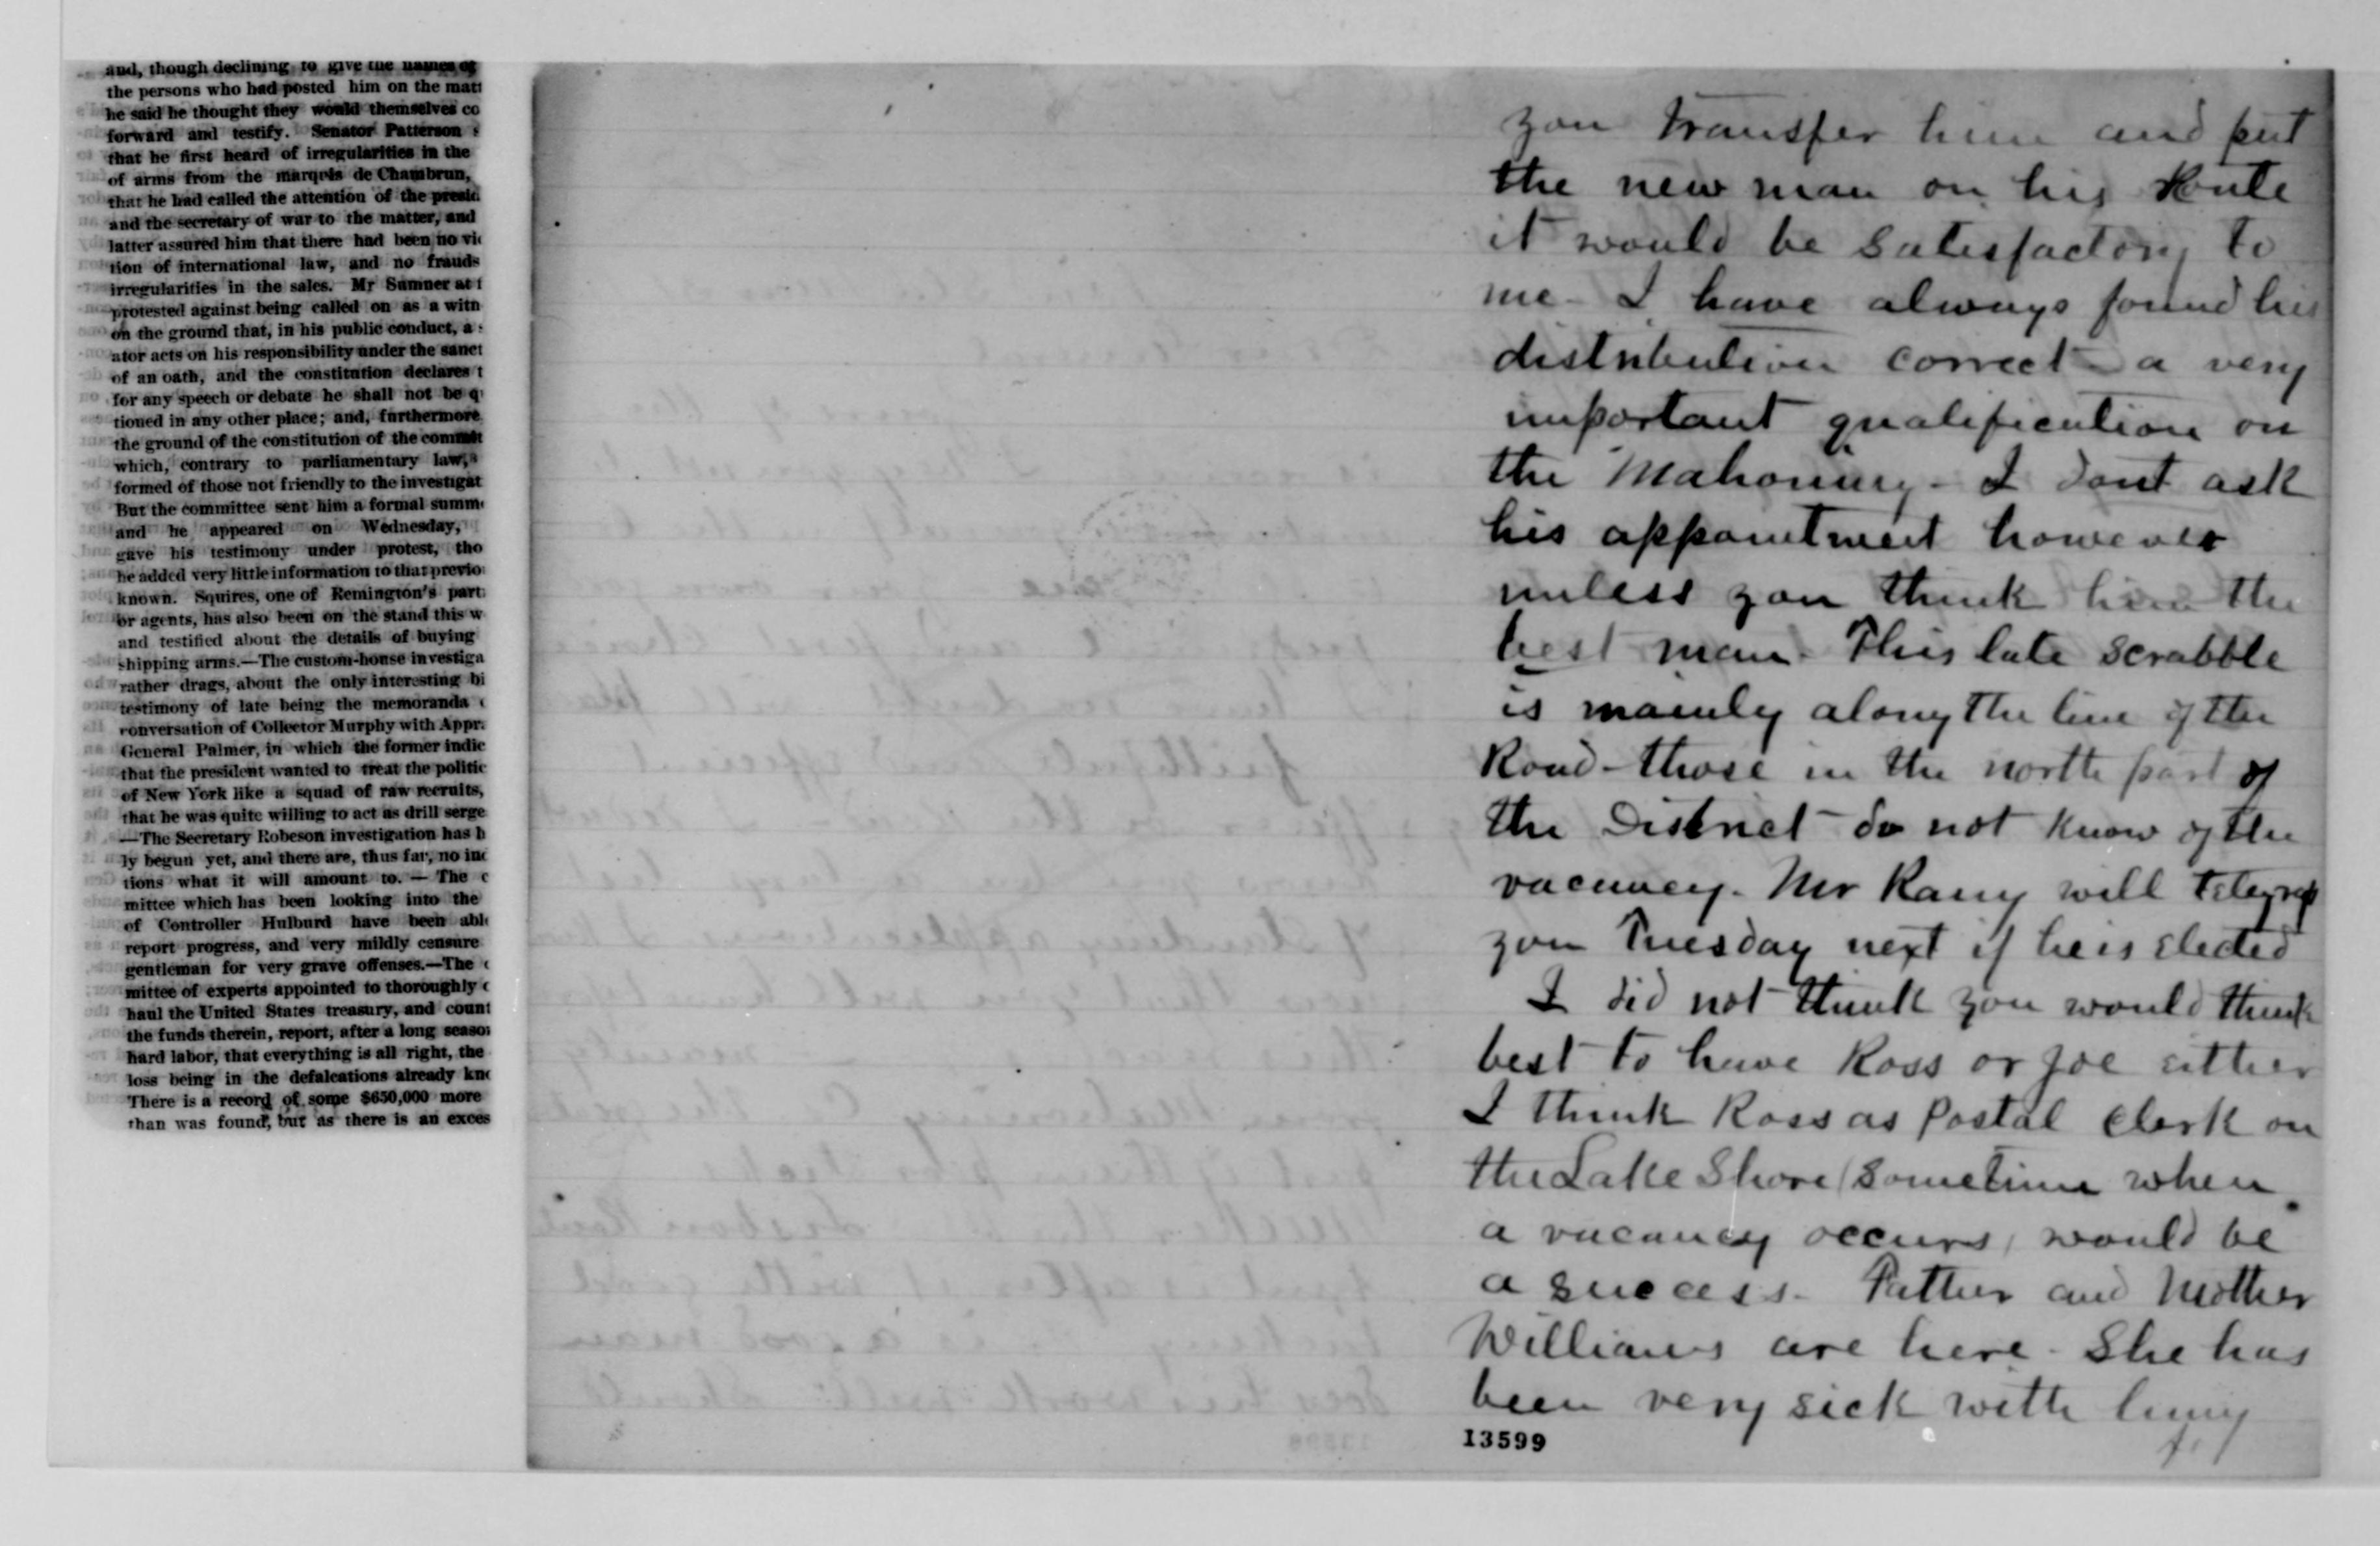 and, though declining to give the names of
the persons who had posted him on the matt
he said he thought they would themselves co
forward and testify. Senator Patterson s
that he first heard of irregularities in the
of arms from the marquis de Chambrun,
that he had called the attention of the presid
and the secretary of war to the matter, and
latter assured him that there had been no vio
tion of international law, and no frauds
irregularities in the sales. Mr Sumner at f
protested against being called on as a witn
on the ground that, in his public conduct, a s
ator acts on his responsibility under the sanct
of an oath, and the constitution declares t
for any speech or debate he shall not be q
tioned in any other place; and, furthermore
the ground of the constitution of the committ
which, contrary to parliamentary law,
formed of those not friendly to the investigat
But the committee sent him a formal summ
and he appeared on Wednesday,
gave his testimony under protest, tho
he added very little information to that previo
known. Squires, one of Remington's part
or agents, has also been on the stand this w
and testified about the details of buying
shipping arms.—The custom-house investiga
rather drags, about the only interesting bi
testimony of late being the memoranda
conversation of Collector Murphy with Appr.
General Palmer, in which the former indic
that the president wanted to treat the politic
of New York like a squad of raw recruits,
that he was quite willing to act as drill serge
—The Secretary Robeson investigation has h
ly begun yet, and there are, thus far, no ind
tions what it will amount to. — The c
mittee which has been looking into the
of Controller Hulburd have been able
report progress, and very mildly censure
gentleman for very grave offenses.—The c
mittee of experts appointed to thoroughly
haul the United States treasury, and count
the funds therein, report, after a long season
hard labor, that everything is all right, the
loss being in the defalcations already kno
There is a record of some $650,000 more
than was found, but as there is an exces
you transfer him and put
the new man on his Route
it would be satisfactory to
me - I have always found his
distribution correct - a very
important qualification on
the Mahoning - I dont ask
his appointment however
unless you think him the
best man. This late scrabble
is mainly along the line of the
Road - those in the north part of
the District do not know of the
vacancy. Mr Rany will telegrap
you Tuesday next if he is elected
I did not think you would think
best to have Ross or Joe either
I think Ross as Postal Clerk on
the Lake Shore (sometime when
a vacancy occurs) would be
a success - Father and Mother
Williams are here - She has
been very sick with lung
13599